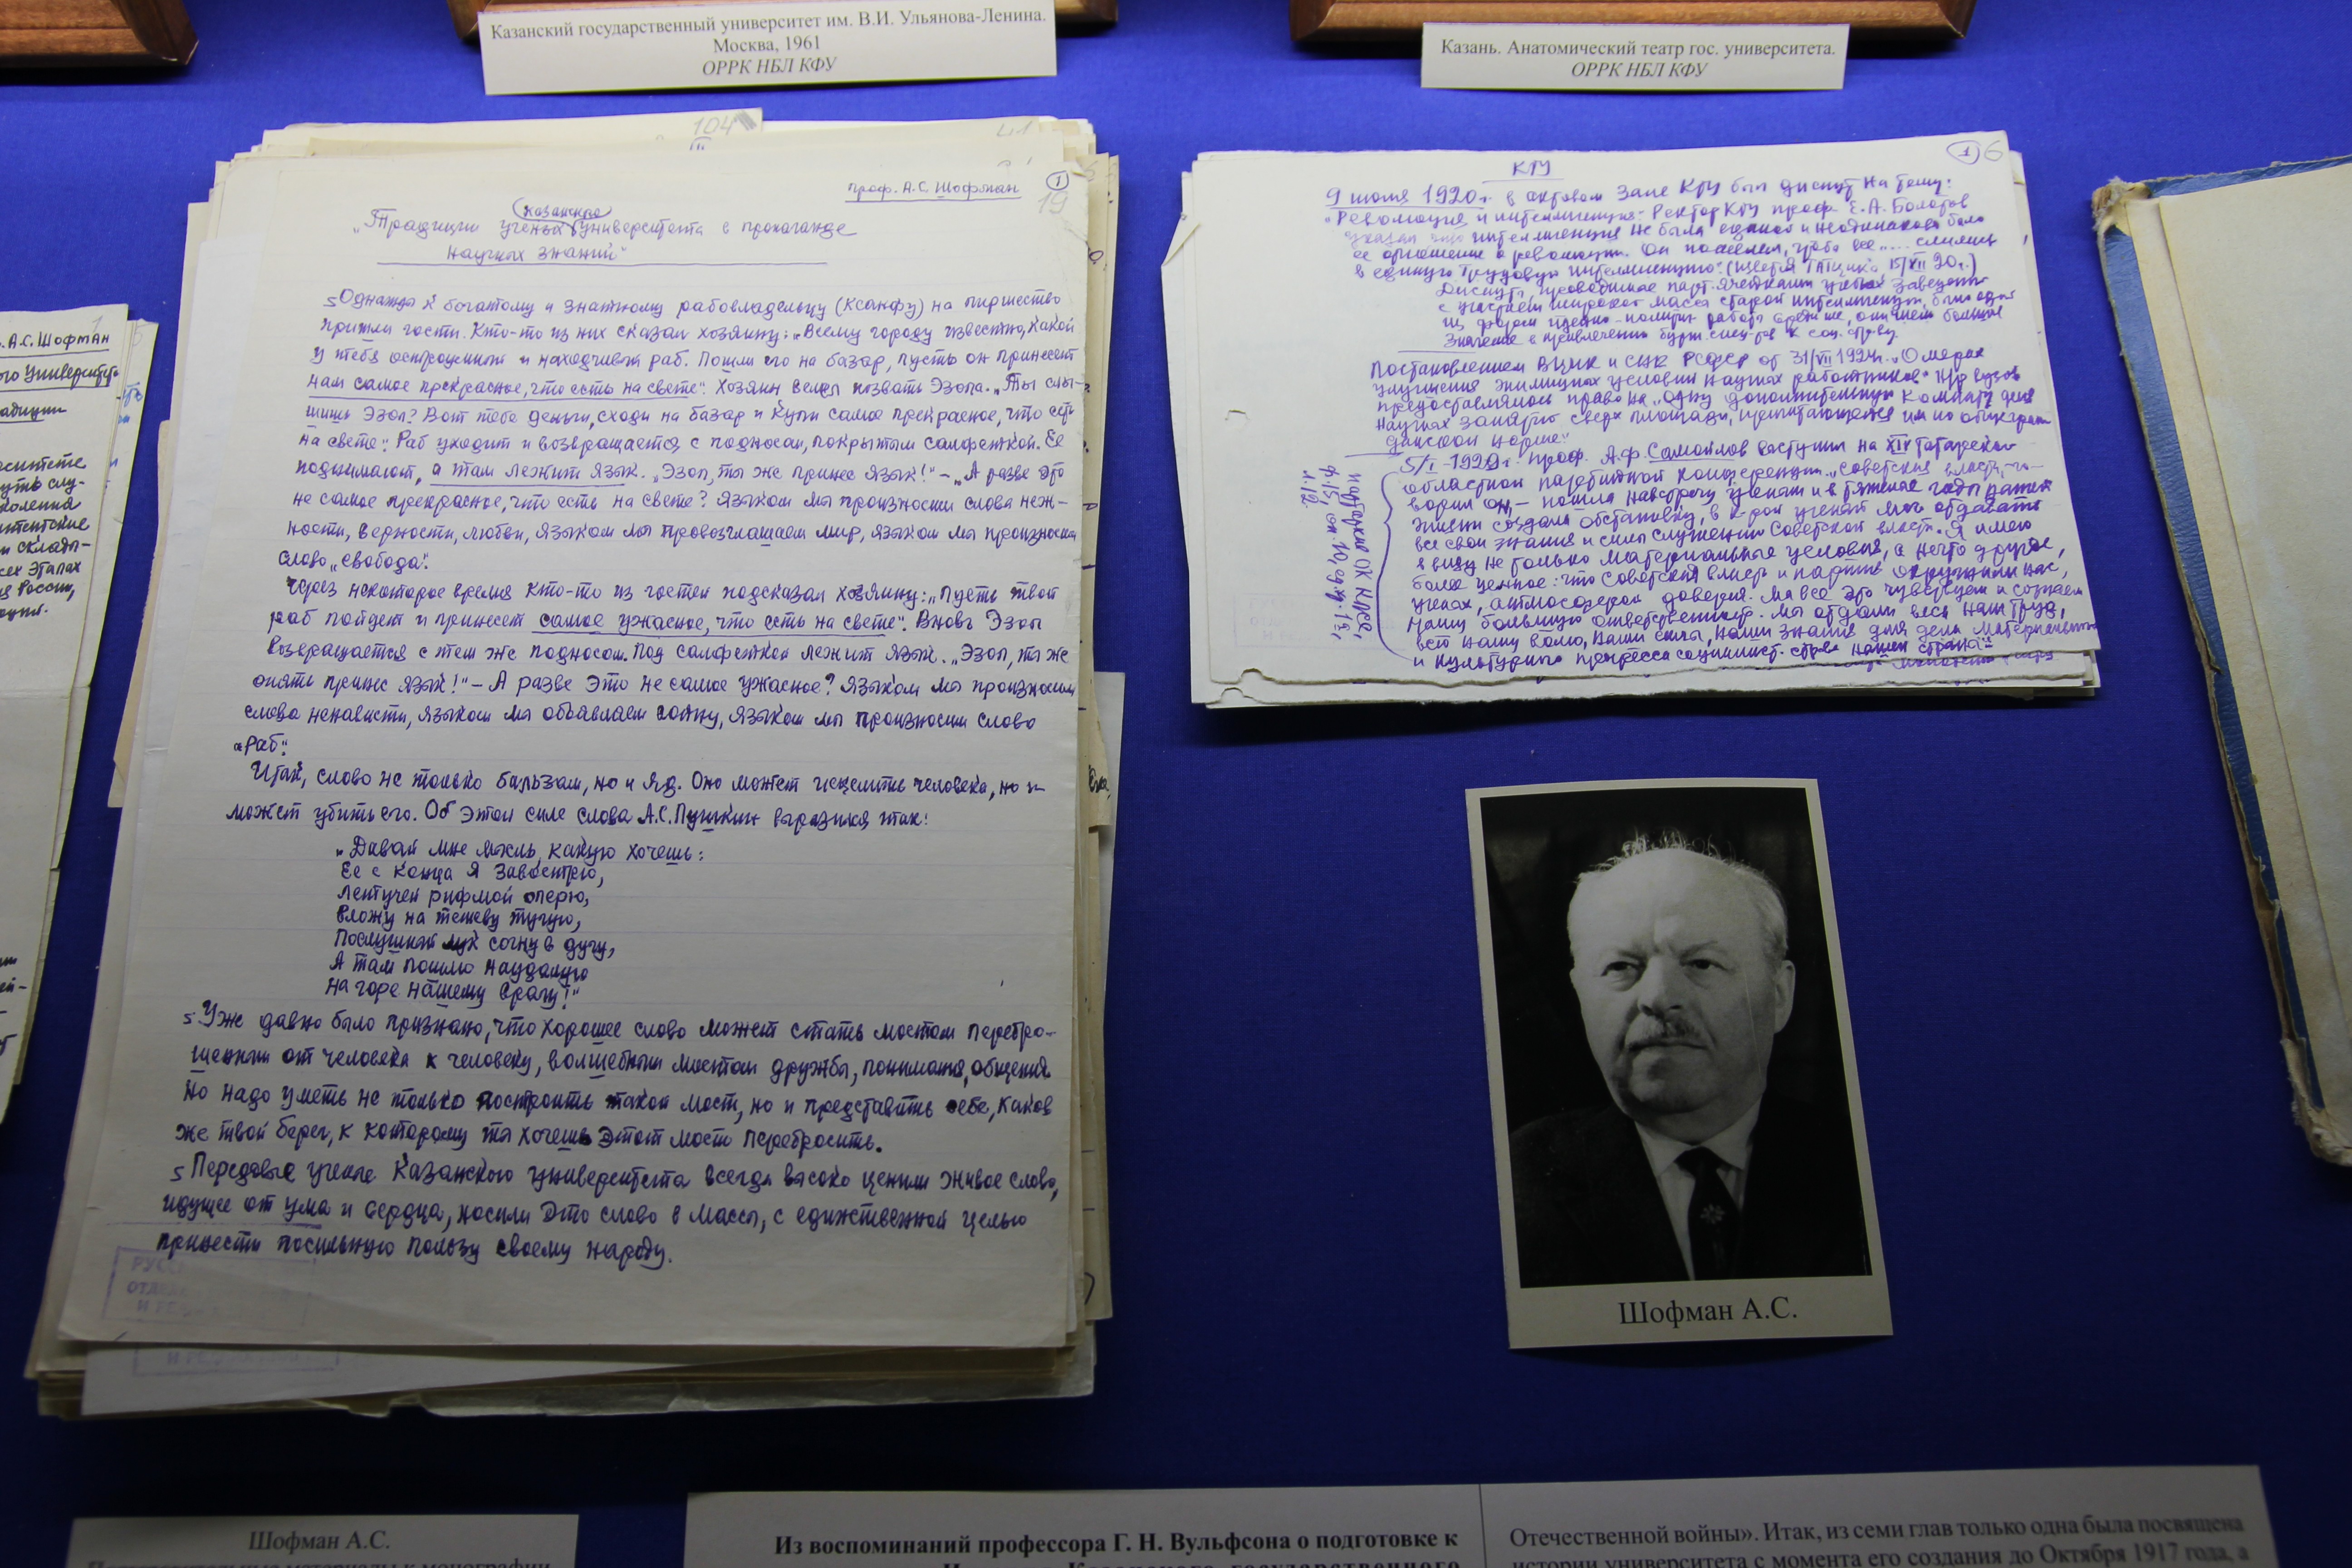 Казанский государственный университет им. В.И. Ульянова-Ленина.
Москва, 1961
ОРРК НБЛ КФУ
Казань. Анатомический театр гос. университета.
ОРРК НБЛ КФУ
А.С. Шофман
104
III
проф. А.С. Шофман
1
19
казанского
„Традиции ученых университета в пропаганде
научных знаний“
Однажды к богатому и знатному рабовладельцу (Ксанфу) на пиршество
пришли гости. Кто-то из них сказал хозяину: „Всему городу известно, какой
у тебя остроумный и находчивый раб. Пошли его на базар, пусть он принесет
нам самое прекрасное, что есть на свете“. Хозяин велел позвать Эзопа. „Ты слы-
шишь Эзоп? Вот тебе деньги, сходи на базар и купи самое прекрасное, что есть
на свете“. Раб уходит и возвращается с подносом, покрытым салфеткой. Ее
поднимают, а там лежит язык. „Эзоп, ты же принес язык!“ – „А разве это
не самое прекрасное, что есть на свете? Языком мы произносим слова неж-
ности, верности, любви, языком мы провозглашаем мир, языком мы произносим
слово „свобода“.
Через некоторое время кто-то из гостей подсказал хозяину: „Пусть твой
раб пойдет и принесет самое ужасное, что есть на свете“. Вновь Эзоп
возвращается с тем же подносом. Под салфеткой лежит язык. „Эзоп, ты же
опять принес язык!“ – А разве это не самое ужасное? Языком мы произносим
слова ненависти, языком мы объявляем войну, языком мы произносим слово
„раб“.
Итак, слово не только бальзам, но и яд. Оно может исцелить человека, но и
может убить его. Об этой силе слова А.С. Пушкин выразился так:
„Давай мне мысль, какую хочешь:
Ее с конца я завострю,
Летучей рифмой оперю,
Вложу на тетеву тугую,
Послушный лук согну в дугу,
А там пошлю наудалую
На горе нашему врагу!“
Уже давно было признано, что хорошее слово может стать мостом перебро-
шенным от человека к человеку, волшебным мостом дружбы, понимания, общения.
Но надо уметь не только построить такой мост, но и представить себе, каков
же твой берег, к которому ты хочешь этот мост перебросить.
Передовые ученые Казанского университета всегда высоко ценили живое слово,
идущее от ума и сердца, носили это слово в массы, с единственной целью
принести посильную пользу своему народу.
1
6
КГУ
9 июля 1920 г. в актовом зале КГУ был диспут на тему:
„Революция и интеллигенция“. Ректор КГУ проф. Е.А. Болотов
указал что интеллигенция не была единой и неодинаково было
ее отношение к революции. Он пожелал, чтобы все ..... слились
в единую трудовую интеллигенцию“.
Диспуты, проводимые парт. ячейками учебных заведений
с участием широкой массы старой интеллигенции, были одной
из форм идейно-политич. работы среди нее, они имели большое
значение в привлечении
Постановлением ВЦИК и СНК РСФСР от 31/VII 1924 г. „О мерах
улучшения жилищных условий научных работников“ н/р вузов
предоставлялось право на „одну дополнительную комнату для
научных занятий сверх площади, причитающейся им по общеграж-
данской норме“.
проф. А.Ф. Самойлов выступил на XIV татарской
областной партийной конференции. „Советская власть, – го-
ворил он, – пошла навстречу ученым и в тяжелые годы
жизни создала обстановку, в к-рой ученый мог отдавать
все свои знания и силы служению Советской власти. Я имею
в виду не только материальные условия, а нечто другое,
более ценное: что Советская власть и партия окружили нас,
ученых, атмосферой доверия. Мы все это чувствуем и сознаем
нашу большую ответственность. Мы отдали весь наш труд,
всю нашу волю, наши силы, наши знания для дела материального
и культурного прогресса социалист. стр-ва нашей страны“.
Шофман А.С.
Шофман А.С.
Из воспоминаний профессора Г. Н. Вульфсона о подготовке к
Отечественной войны». Итак, из семи глав только одна была посвящена
истории университета с момента его создания до Октября 1917 года, а